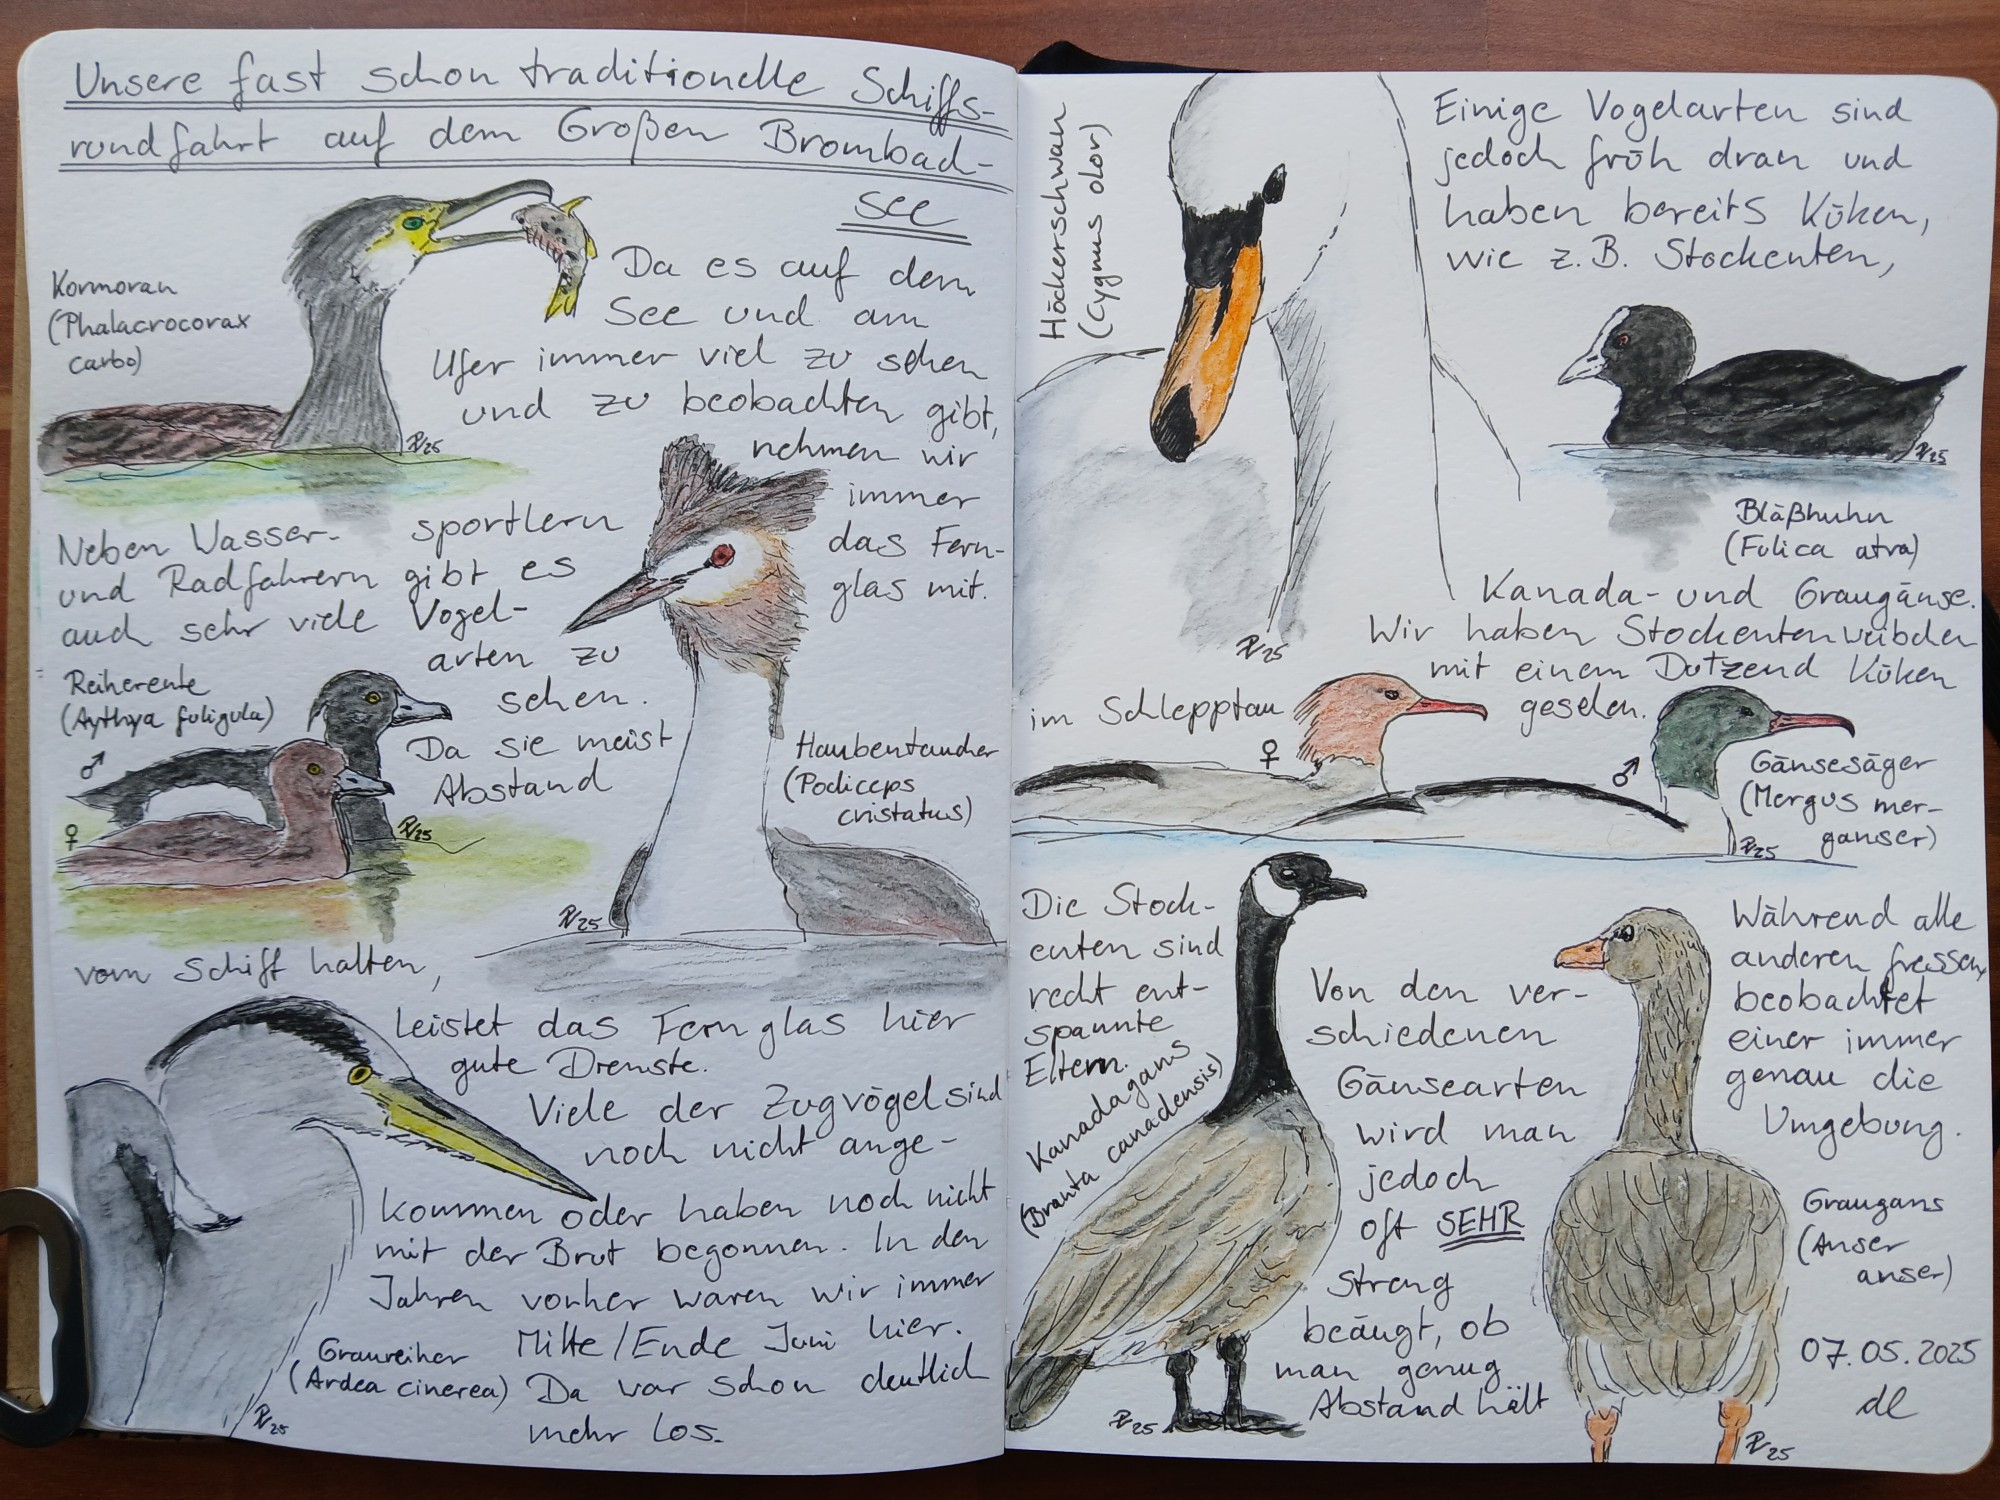 Unsere fast schon traditionelle Schiffs-
rundfahrt auf dem Großen Brombach-
see
Kormoran
(Phalacrocorax
carbo)
Da es auf dem
See und am
Ufer immer viel zu sehen
und zu beobachten gibt,
nehmen wir
immer
das Fern-
glas mit.
25
Neben Wasser- sportlern
und Radfahrern gibt es
auch sehr viele Vogel-
arten zu
sehen.
Reiherente
(Aythya fuligula)
♂
♀
25
Da sie meist
Abstand
Haubentaucher
(Podiceps
cristatus)
25
vom Schiff halten,
leistet das Fernglas hier
gute Dienste.
Viele der Zugvögel sind
noch nicht ange-
kommen oder haben noch nicht
mit der Brut begonnen. In den
Jahren vorher waren wir immer
Mitte/Ende Juni hier.
Da war schon deutlich
mehr los.
Graureiher
(Ardea cinerea)
25
Höckerschwan
(Cygnus olor)
25
Einige Vogelarten sind
jedoch früh dran und
haben bereits Küken,
wie z.B. Stockenten,
25
Bläßhuhn
(Fulica atra)
Kanada- und Graugänse.
Wir haben Stockentenweibchen
mit einem Dutzend Küken
im Schlepptau gesehen.
♀
♂
Gänsesäger
(Mergus mer-
ganser)
25
Die Stock-
enten sind
recht ent-
spannte
Eltern.
Kanadagans
(Branta canadensis)
25
Von den ver-
schiedenen
Gänsearten
wird man
jedoch
oft SEHR
streng
beäugt, ob
man genug
Abstand hält
Während alle
anderen fressen,
beobachtet
einer immer
genau die
Umgebung.
Graugans
(Anser
anser)
25
07.05.2025